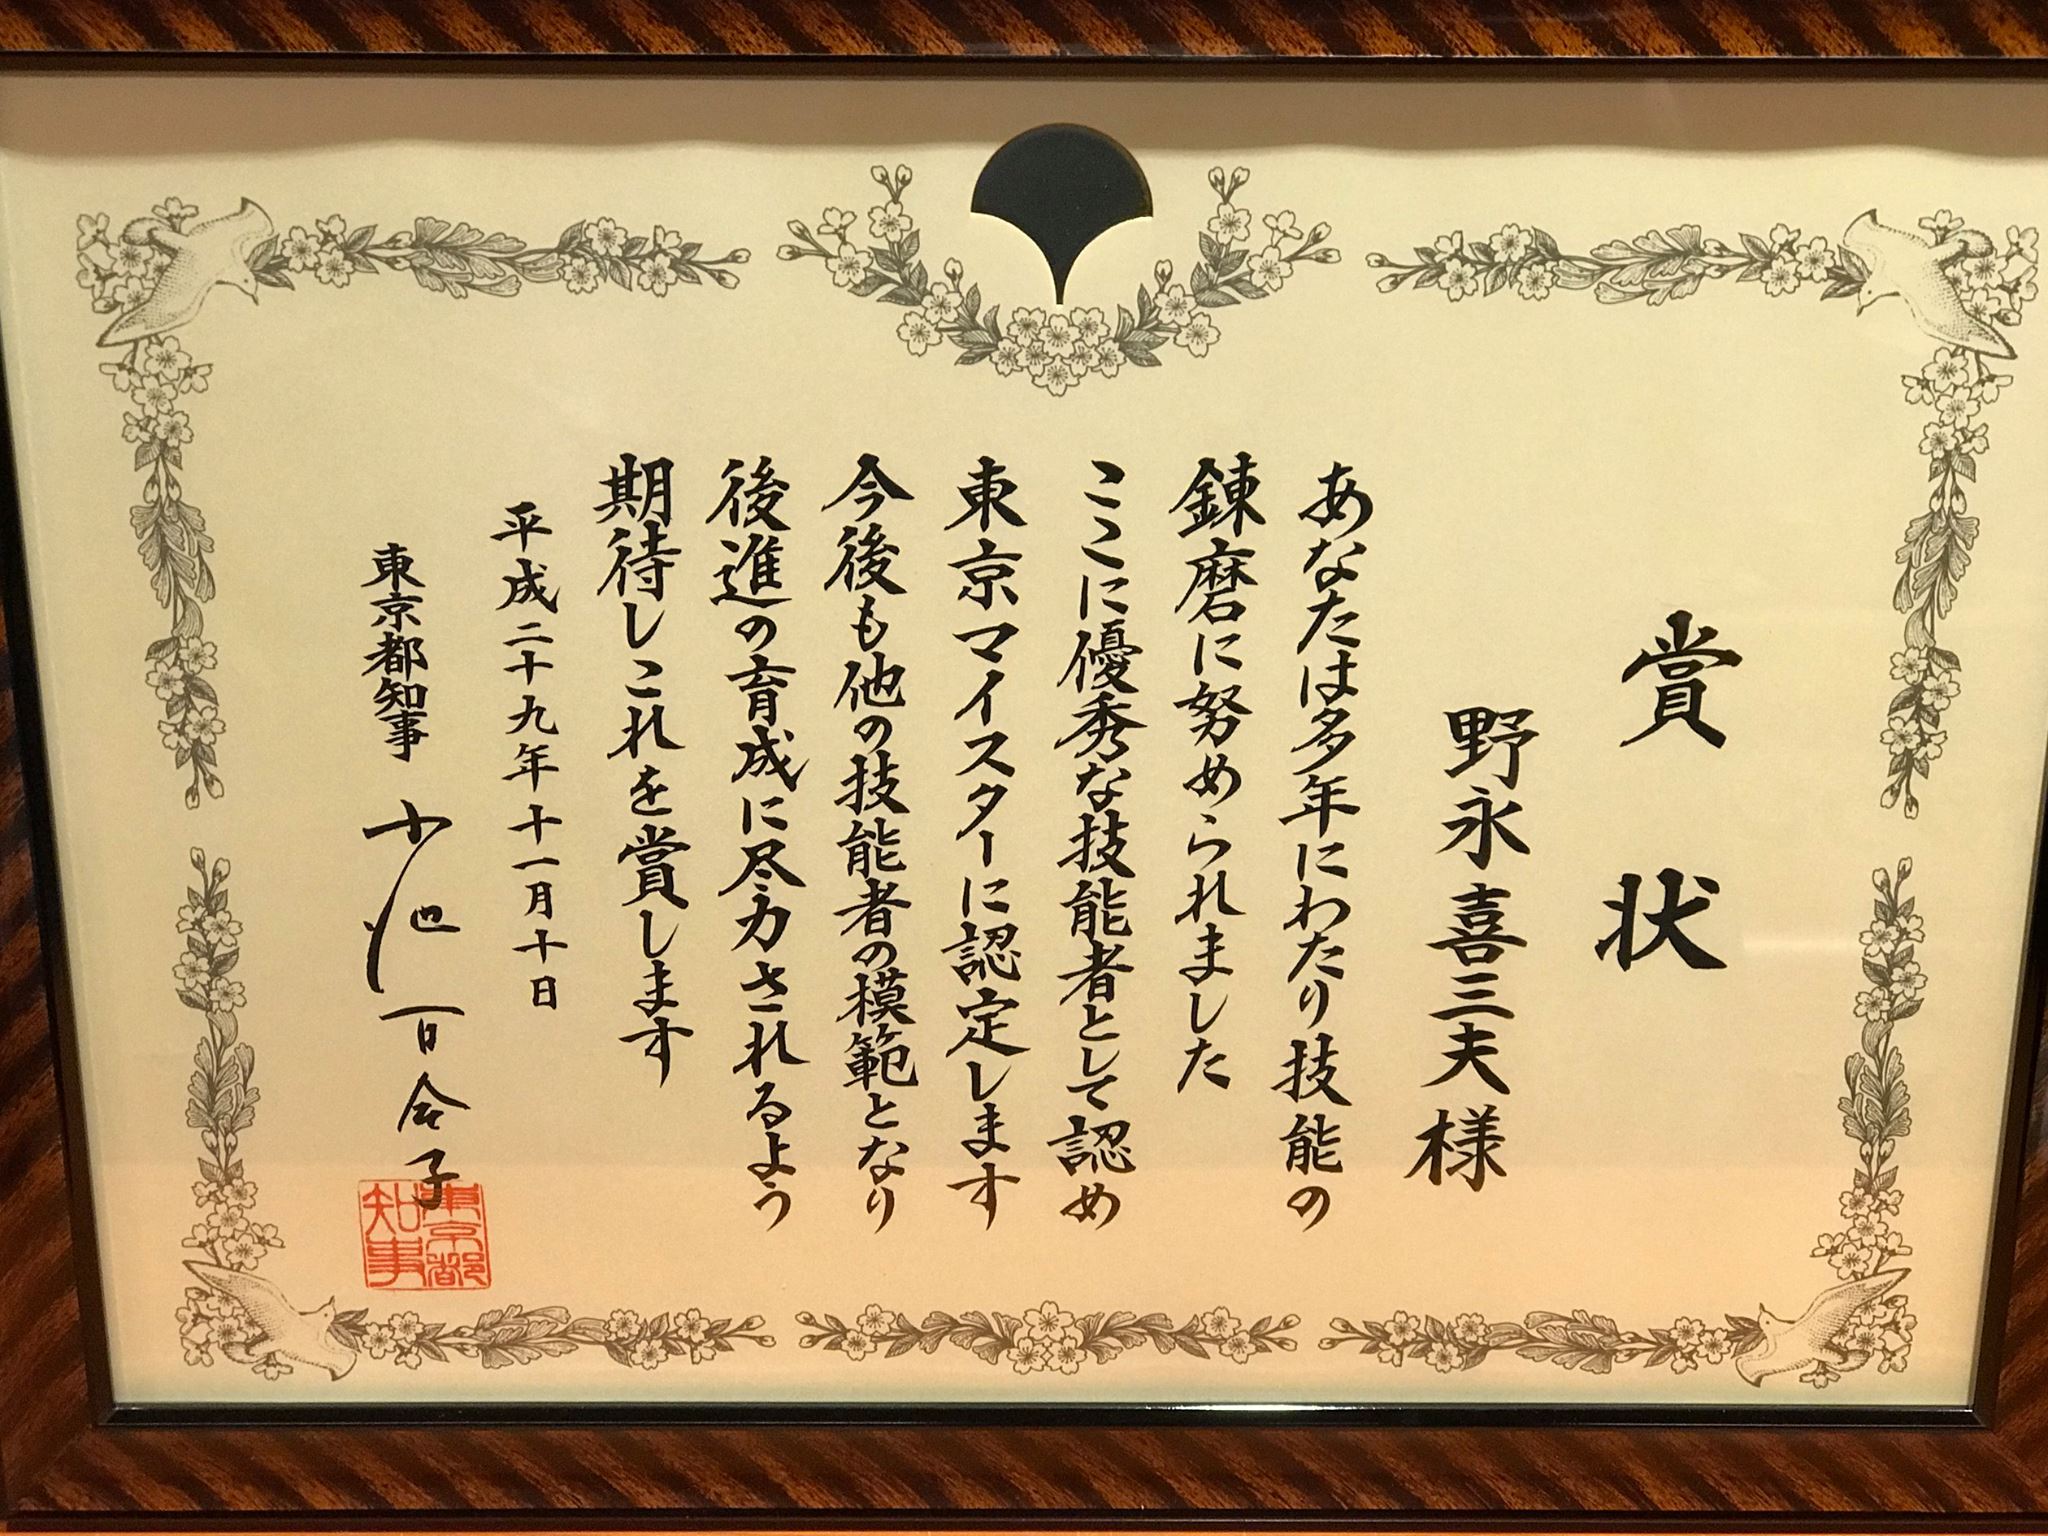 賞状
野永喜三夫様
あなたは多年にわたり技能の
錬磨に努められました
ここに優秀な技能者として認め
東京マイスターに認定します
今後も他の技能者の模範となり
後進の育成に尽力されるよう
期待しこれを賞します
平成二十九年十一月十日
東京都知事 小池百合子
東京都
知事